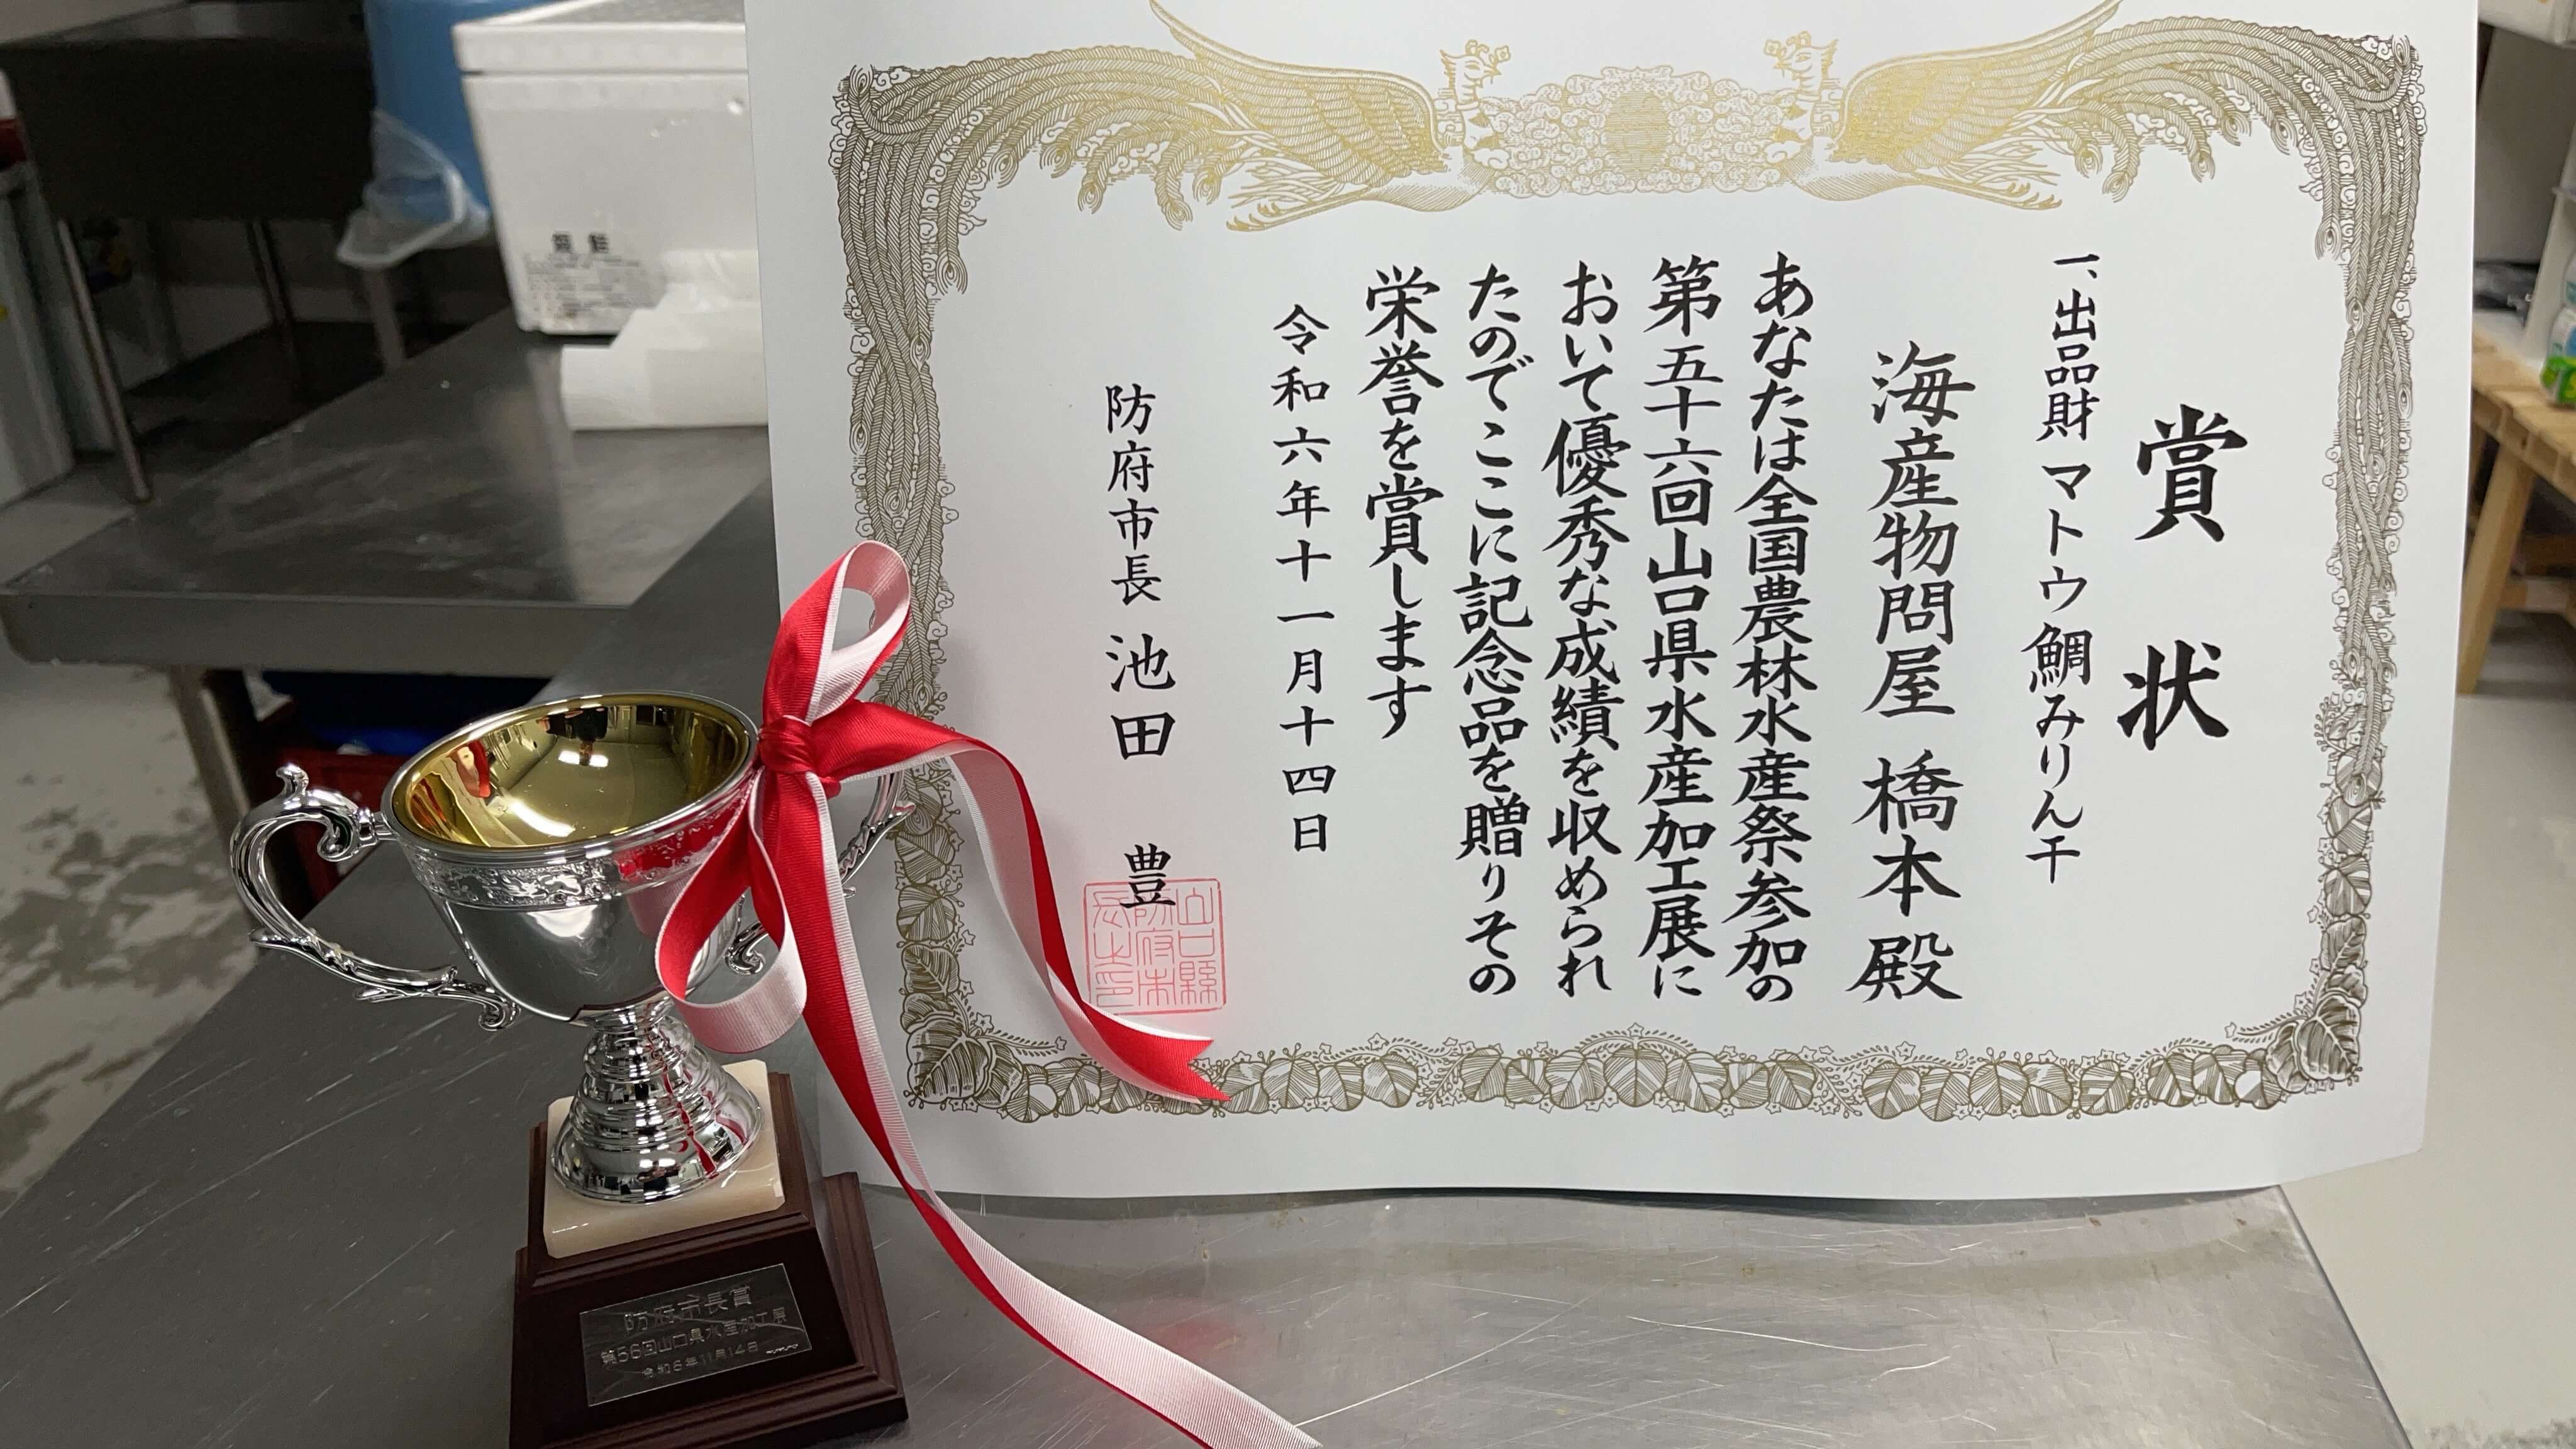 賞状
一、出品財 マトウ鯛みりん干
海産物問屋 橋本 殿
あなたは全国農林水産祭参加の
第五十六回山口県水産加工展に
おいて優秀な成績を収められ
たのでここに記念品を贈りその
栄誉を賞します
令和六年十一月十四日
防府市長 池田 豊
山口縣
防府市
長之印
防府市長賞
第56回山口県水産加工展
令和6年11月14日